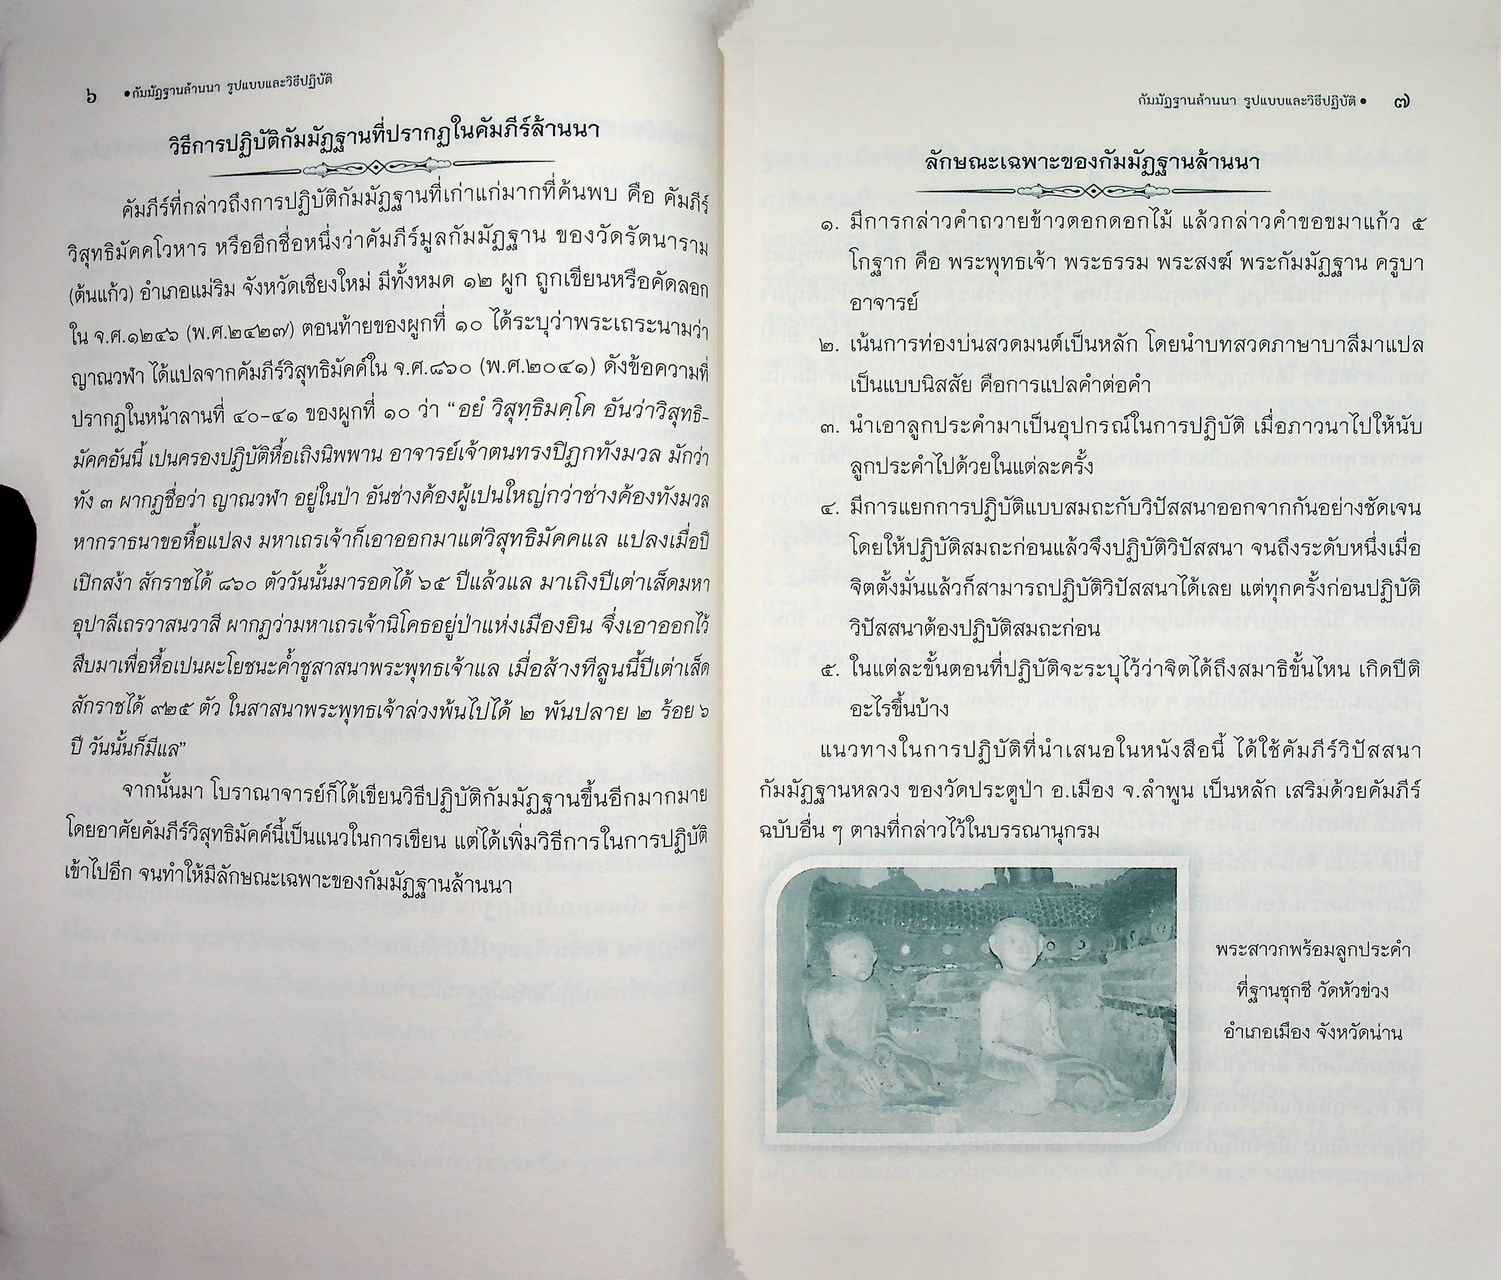 ๖ •กัมมัฏฐานล้านนา รูปแบบและวิธีปฏิบัติ
วิธีการปฏิบัติกัมมัฏฐานที่ปรากฏในคัมภีร์ล้านนา
คัมภีร์ที่กล่าวถึงการปฏิบัติกัมมัฏฐานที่เก่าแก่มากที่ค้นพบ คือ คัมภีร์
วิสุทธิมัคคโวหาร หรืออีกชื่อหนึ่งว่าคัมภีร์มูลกัมมัฏฐาน ของวัดรัตนาราม
(ต้นแก้ว) อำเภอแม่ริม จังหวัดเชียงใหม่ มีทั้งหมด ๑๒ ผูก ถูกเขียนหรือคัดลอก
ใน จ.ศ.๑๒๔๖ (พ.ศ.๒๔๒๗) ตอนท้ายของผูกที่ ๑๐ ได้ระบุว่าพระเถระนามว่า
ญาณวฬา ได้แปลจากคัมภีร์วิสุทธิมัคค์ใน จ.ศ.๘๖๐ (พ.ศ.๒๐๔๑) ดังข้อความที่
ปรากฏในหน้าลานที่ ๔๐-๔๑ ของผูกที่ ๑๐ ว่า “อยํ วิสุทฺธิมคฺโค อันว่าวิสุทธิ-
มัคคอันนี้ เปนครองปฏิบัติหื้อเถิงนิพพาน อาจารย์เจ้าตนทรงปิฏกทังมวล มักว่า
ทัง ๓ ผากฏชื่อว่า ญาณวฬา อยู่ในป่า อันช่างค้องผู้เปนใหญ่กว่าช่างค้องทังมวล
หากราธนาขอหื้อแปลง มหาเถรเจ้าก็เอาออกมาแต่วิสุทธิมัคคแล แปลงเมื่อปี
เปิกสง้า สักราชได้ ๘๖๐ ตัววันนั้นมารอดได้ ๖๕ ปีแล้วแล มาเถิงปีเต่าเส็ดมหา
อุปาลีเถรวาสนวาสี ผากฏว่ามหาเถรเจ้านิโคธอยู่ป่าแห่งเมืองยิน จึ่งเอาออกไว้
สืบมาเพื่อหื้อเปนผะโยชนะค้ำชูสาสนาพระพุทธเจ้าแล เมื่อส้างทีลูนนี้ปีเต่าเส็ด
สักราชได้ ๙๒๕ ตัว ในสาสนาพระพุทธเจ้าล่วงพ้นไปได้ ๒ พันปลาย ๒ ร้อย ๖
ปี วันนั้นก็มีแล”
จากนั้นมา โบราณาจารย์ก็ได้เขียนวิธีปฏิบัติกัมมัฏฐานขึ้นอีกมากมาย
โดยอาศัยคัมภีร์วิสุทธิมัคค์นี้เป็นแนวในการเขียน แต่ได้เพิ่มวิธีการในการปฏิบัติ
เข้าไปอีก จนทำให้มีลักษณะเฉพาะของกัมมัฏฐานล้านนา
กัมมัฏฐานล้านนา รูปแบบและวิธีปฏิบัติ • ๗
ลักษณะเฉพาะของกัมมัฏฐานล้านนา
๑. มีการกล่าวคำถวายข้าวตอกดอกไม้ แล้วกล่าวคำขอขมาแก้ว ๕
โกฐาก คือ พระพุทธเจ้า พระธรรม พระสงฆ์ พระกัมมัฏฐาน ครูบา
อาจารย์
๒. เน้นการท่องบ่นสวดมนต์เป็นหลัก โดยนำบทสวดภาษาบาลีมาแปล
เป็นแบบนิสสัย คือการแปลคำต่อคำ
๓. นำเอาลูกประคำมาเป็นอุปกรณ์ในการปฏิบัติ เมื่อภาวนาไปให้นับ
ลูกประคำไปด้วยในแต่ละครั้ง
๔. มีการแยกการปฏิบัติแบบสมถะกับวิปัสสนาออกจากกันอย่างชัดเจน
โดยให้ปฏิบัติสมถะก่อนแล้วจึงปฏิบัติวิปัสสนา จนถึงระดับหนึ่งเมื่อ
จิตตั้งมั่นแล้วก็สามารถปฏิบัติวิปัสสนาได้เลย แต่ทุกครั้งก่อนปฏิบัติ
วิปัสสนาต้องปฏิบัติสมถะก่อน
๕. ในแต่ละขั้นตอนที่ปฏิบัติจะระบุไว้ว่าจิตได้ถึงสมาธิขั้นไหน เกิดปีติ
อะไรขึ้นบ้าง
แนวทางในการปฏิบัติที่นำเสนอในหนังสือนี้ ได้ใช้คัมภีร์วิปัสสนา
กัมมัฏฐานหลวง ของวัดประตูป่า อ.เมือง จ.ลำพูน เป็นหลัก เสริมด้วยคัมภีร์
ฉบับอื่น ๆ ตามที่กล่าวไว้ในบรรณานุกรม
พระสาวกพร้อมลูกประคำ
ที่ฐานชุกชี วัดหัวข่วง
อำเภอเมือง จังหวัดน่าน